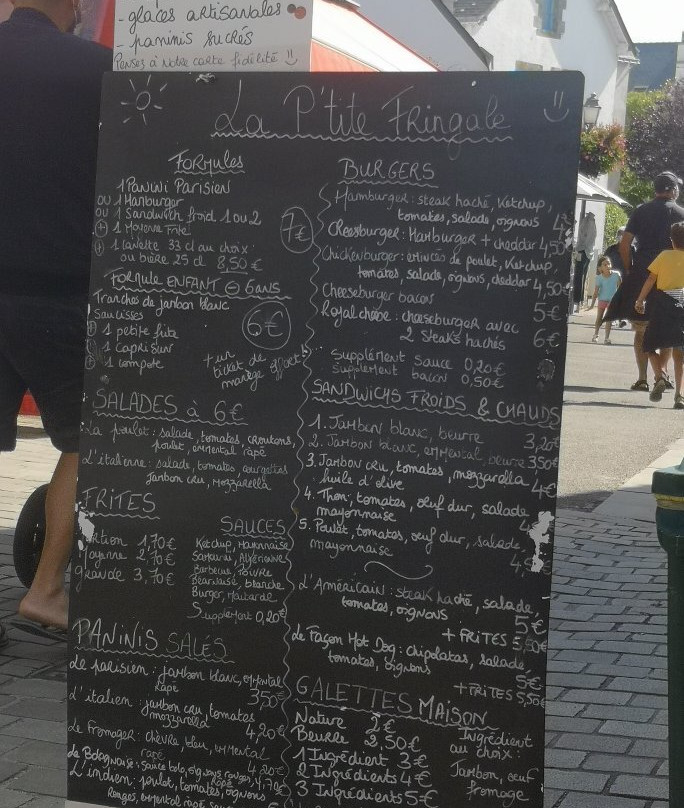 - glaces artisanales
- paninis sucrés
Pensez à notre carte fidélité
La P'tite Fringale
Formules
1 Panini Parisien
ou 1 Hamburger
ou 1 Sandwich froid 1 ou 2
+ 1 Moyenne Frite
+ 1 canette 33 cl au choix
7€
ou bière 25 cl 8,50€
Formule ENFANT - 6ans
Tranches de jambon blanc
Saucisses
1 petite frite
1 caprisun
1 compote
6€
+ un ticket de manège offert
SALADES à 6€
La poulet : salade, tomates, croutons,
poulet, emmental rapé
L'italienne : salade, tomates, courgettes
Jambon cru, mozzarella
FRITES
1,70€
Moyenne 2,70€
grande 3,70€
SAUCES
Ketchup, Mayonnaise
Samouraï, Algérienne
Barbecue, Poivre
Béarnaise, blanche
Burger, Moutarde
Supplément 0,20€
PANINIS SALÉS
Le parisien : jambon blanc, emmental
rapé 3,50€
L'italien : jambon cru, tomates
mozzarella 4,20€
Le Fromager : chèvre, bleu, emmental
rapé 4,20€
Le Bolognaise : sauce bolo, oignons rouges,
4,70€
L'indien : poulet, tomates, oignons
Rouges, emmental rapé, sauce
BURGERS
Hamburger : steak haché, Ketchup,
tomates, salade, oignons 4€
Cheeseburger : Hamburger + cheddar 4,50
Chickenburger : émincés de poulet, Ketchup,
tomates, salade, oignons, cheddar 4,50€
Cheeseburger bacon 5€
Royal cheese : cheeseburger avec
2 steaks hachés 6€
Supplément sauce 0,20€
Supplément bacon 0,50€
SANDWICHS FROIDS & CHAUDS
1. Jambon blanc, beurre 3,20€
2. Jambon blanc, emmental, beurre 3,50€
3. Jambon cru, tomates, mozzarella
huile d'olive 4€
4. Thon, tomates, œuf dur, salade
mayonnaise 4
5. Poulet, tomates, œuf dur, salade,
mayonnaise 4,5
L'Américain : steak haché, salade,
tomates, oignons 5€
+ FRITES 5,50€
Le Façon Hot Dog : chipolatas, salade,
tomates, oignons 5€
+ FRITES 5,50€
GALETTES MAISON
Nature 2€
Beurre 2,50€
1 Ingrédient 3€
2 Ingrédients 4€
3 Ingrédients 5€
Ingrédient
au choix :
Jambon, œuf
fromage